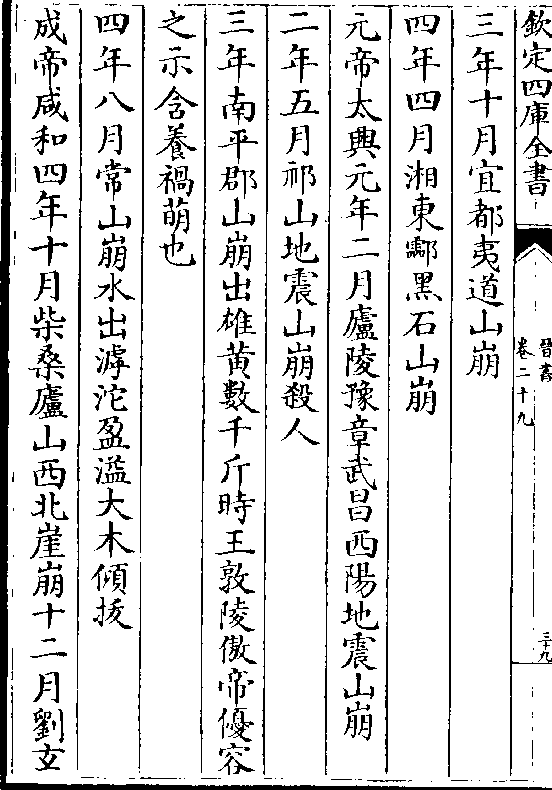 欽定四庫全書
晉書
卷二十九
三十九
三年十月宜都夷道山崩
四年四月湘東酃黑石山崩
元帝太興元年二月廬陵豫章武昌西陽地震山崩
二年五月祁山地震山崩殺人
三年南平郡山崩出雄黄數千斤時王敦陵傲帝優容
之示含養禍萌也
四年八月常山崩水出滹沱盈溢大木傾拔
成帝咸和四年十月柴桑廬山西北崖崩十二月劉𤣥